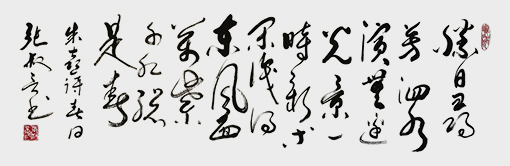 勝日尋
芳泗水
濱無邊
光景一
時新等
閑識得
東風面
萬紫
千紅總
是春
朱熹詩春日
張叔書